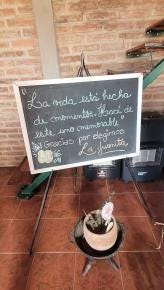 "La vida está hecha
de momentos. Hacé de
este uno memorable"
Gracias por elegirnos
La Juanita